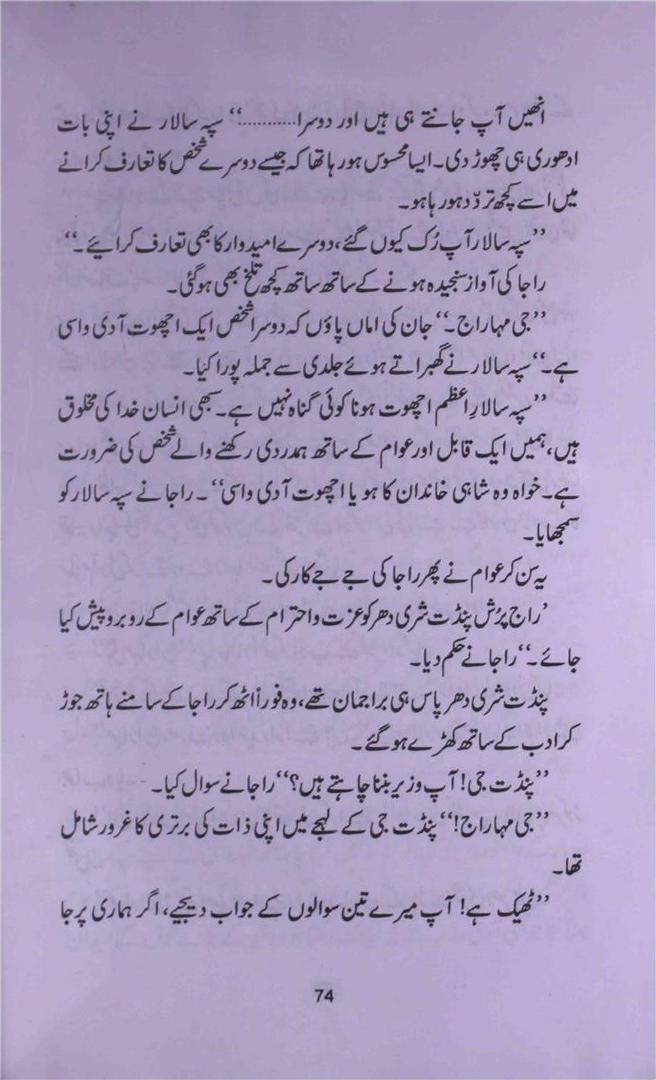 انھیں آپ جانتے ہی ہیں اور دوسرا............‘‘ سپہ سالار نے اپنی بات
ادھوری ہی چھوڑ دی۔ ایسا محسوس ہورہا تھا کہ جیسے دوسرے شخص کا تعارف کرانے
میں اسے کچھ تردّد ہورہا ہو۔
’’سپہ سالار آپ رُک کیوں گئے، دوسرے امیدوار کا بھی تعارف کرائیے۔‘‘
راجا کی آواز سنجیدہ ہونے کے ساتھ ساتھ کچھ تلخ بھی ہوگئی۔
’’جی مہاراج۔‘‘ جان کی اماں پاؤں کہ دوسرا شخص ایک اچھوت آدی واسی
ہے۔‘‘ سپہ سالار نے گھبراتے ہوئے جلدی سے جملہ پورا کیا۔
’’سپہ سالارِ اعظم اچھوت ہونا کوئی گناہ نہیں ہے۔ سبھی انسان خدا کی مخلوق
ہیں، ہمیں ایک قابل اور عوام کے ساتھ ہمدردی رکھنے والے شخص کی ضرورت
ہے۔ خواہ وہ شاہی خاندان کا ہو یا اچھوت آدی واسی‘‘۔ راجا نے سپہ سالار کو
سمجھایا۔
یہ سن کر عوام نے پھر راجا کی جے جے کار کی۔
’راج پرُش پنڈت شری دھر کو عزت و احترام کے ساتھ عوام کے روبرو پیش کیا
جائے۔‘‘ راجا نے حکم دیا۔
پنڈت شری دھر پاس ہی براجمان تھے، وہ فوراً اٹھ کر راجا کے سامنے ہاتھ جوڑ
کر ادب کے ساتھ کھڑے ہوگئے۔
’’پنڈت جی! آپ وزیر بننا چاہتے ہیں؟‘‘ راجا نے سوال کیا۔
’’جی مہاراج!‘‘ پنڈت جی کے لہجے میں اپنی ذات کی برتری کا غرور شامل
تھا۔
’’ٹھیک ہے! آپ میرے تین سوالوں کے جواب دیجیے، اگر ہماری پرجا
74